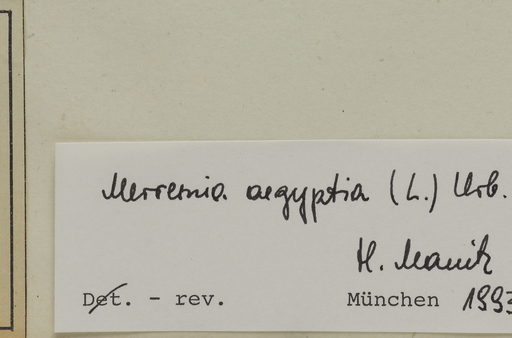 Merremia aegyptia (L.) Urb.
H. Manitz
Det. - rev. München 1993